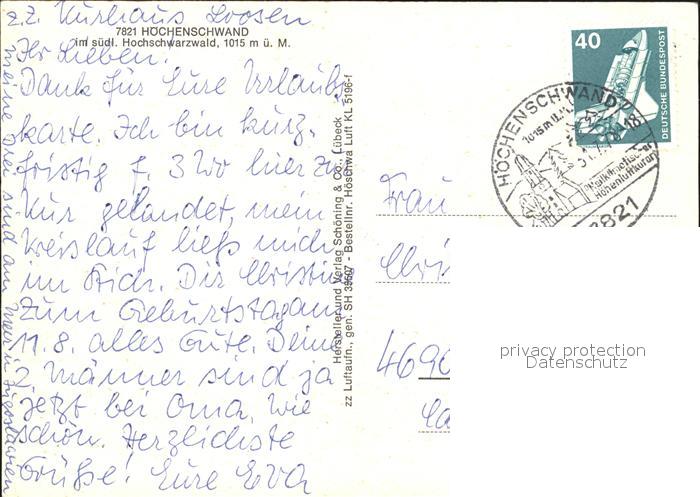 z.Z. Kurhaus Loosen
7821 HÖCHENSCHWAND
im südl. Hochschwarzwald, 1015 m ü. M.
Ihr Lieben!
Dank für Eure Urlaubs-
karte. Ich bin kurz-
fristig f. 3 Wo hier zur
Kur gelandet, mein
Kreislauf ließ mich
im Stich. Dir Christin
zum Geburtstag am
11.8. alles Gute. Deine
2 Männer sind ja
jetzt bei Oma. Wie
schön. Herzlichste
Grüße! Eure Eva
meine drei sind am Meer in Jugoslawien
Hersteller und Verlag Schöning & Co., Lübeck
zz Luftaufn., gen. SH 39507 - Bestellnr. Höschwa Luft KL 5196-f
40
DEUTSCHE BUNDESPOST
HÖCHENSCHWAND
1015 m ü.M.
Heilklimatischer
Höhenluftkurort
7821
Frau
Chris
4690
privacy protection
Datenschutz